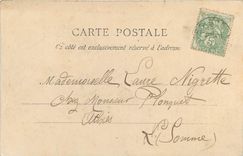 CARTE POSTALE
Ce côté est exclusivement réservé à l'adresse.
Mademoiselle Laure Nigrette
chez Monsieur
Athies
(Somme)